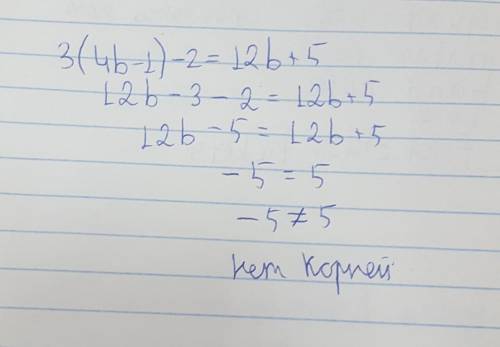 3(4b-1)-2=12b+5
12b-3-2=12b+5
12b-5=12b+5
-5=5
-5≠5
нет корней